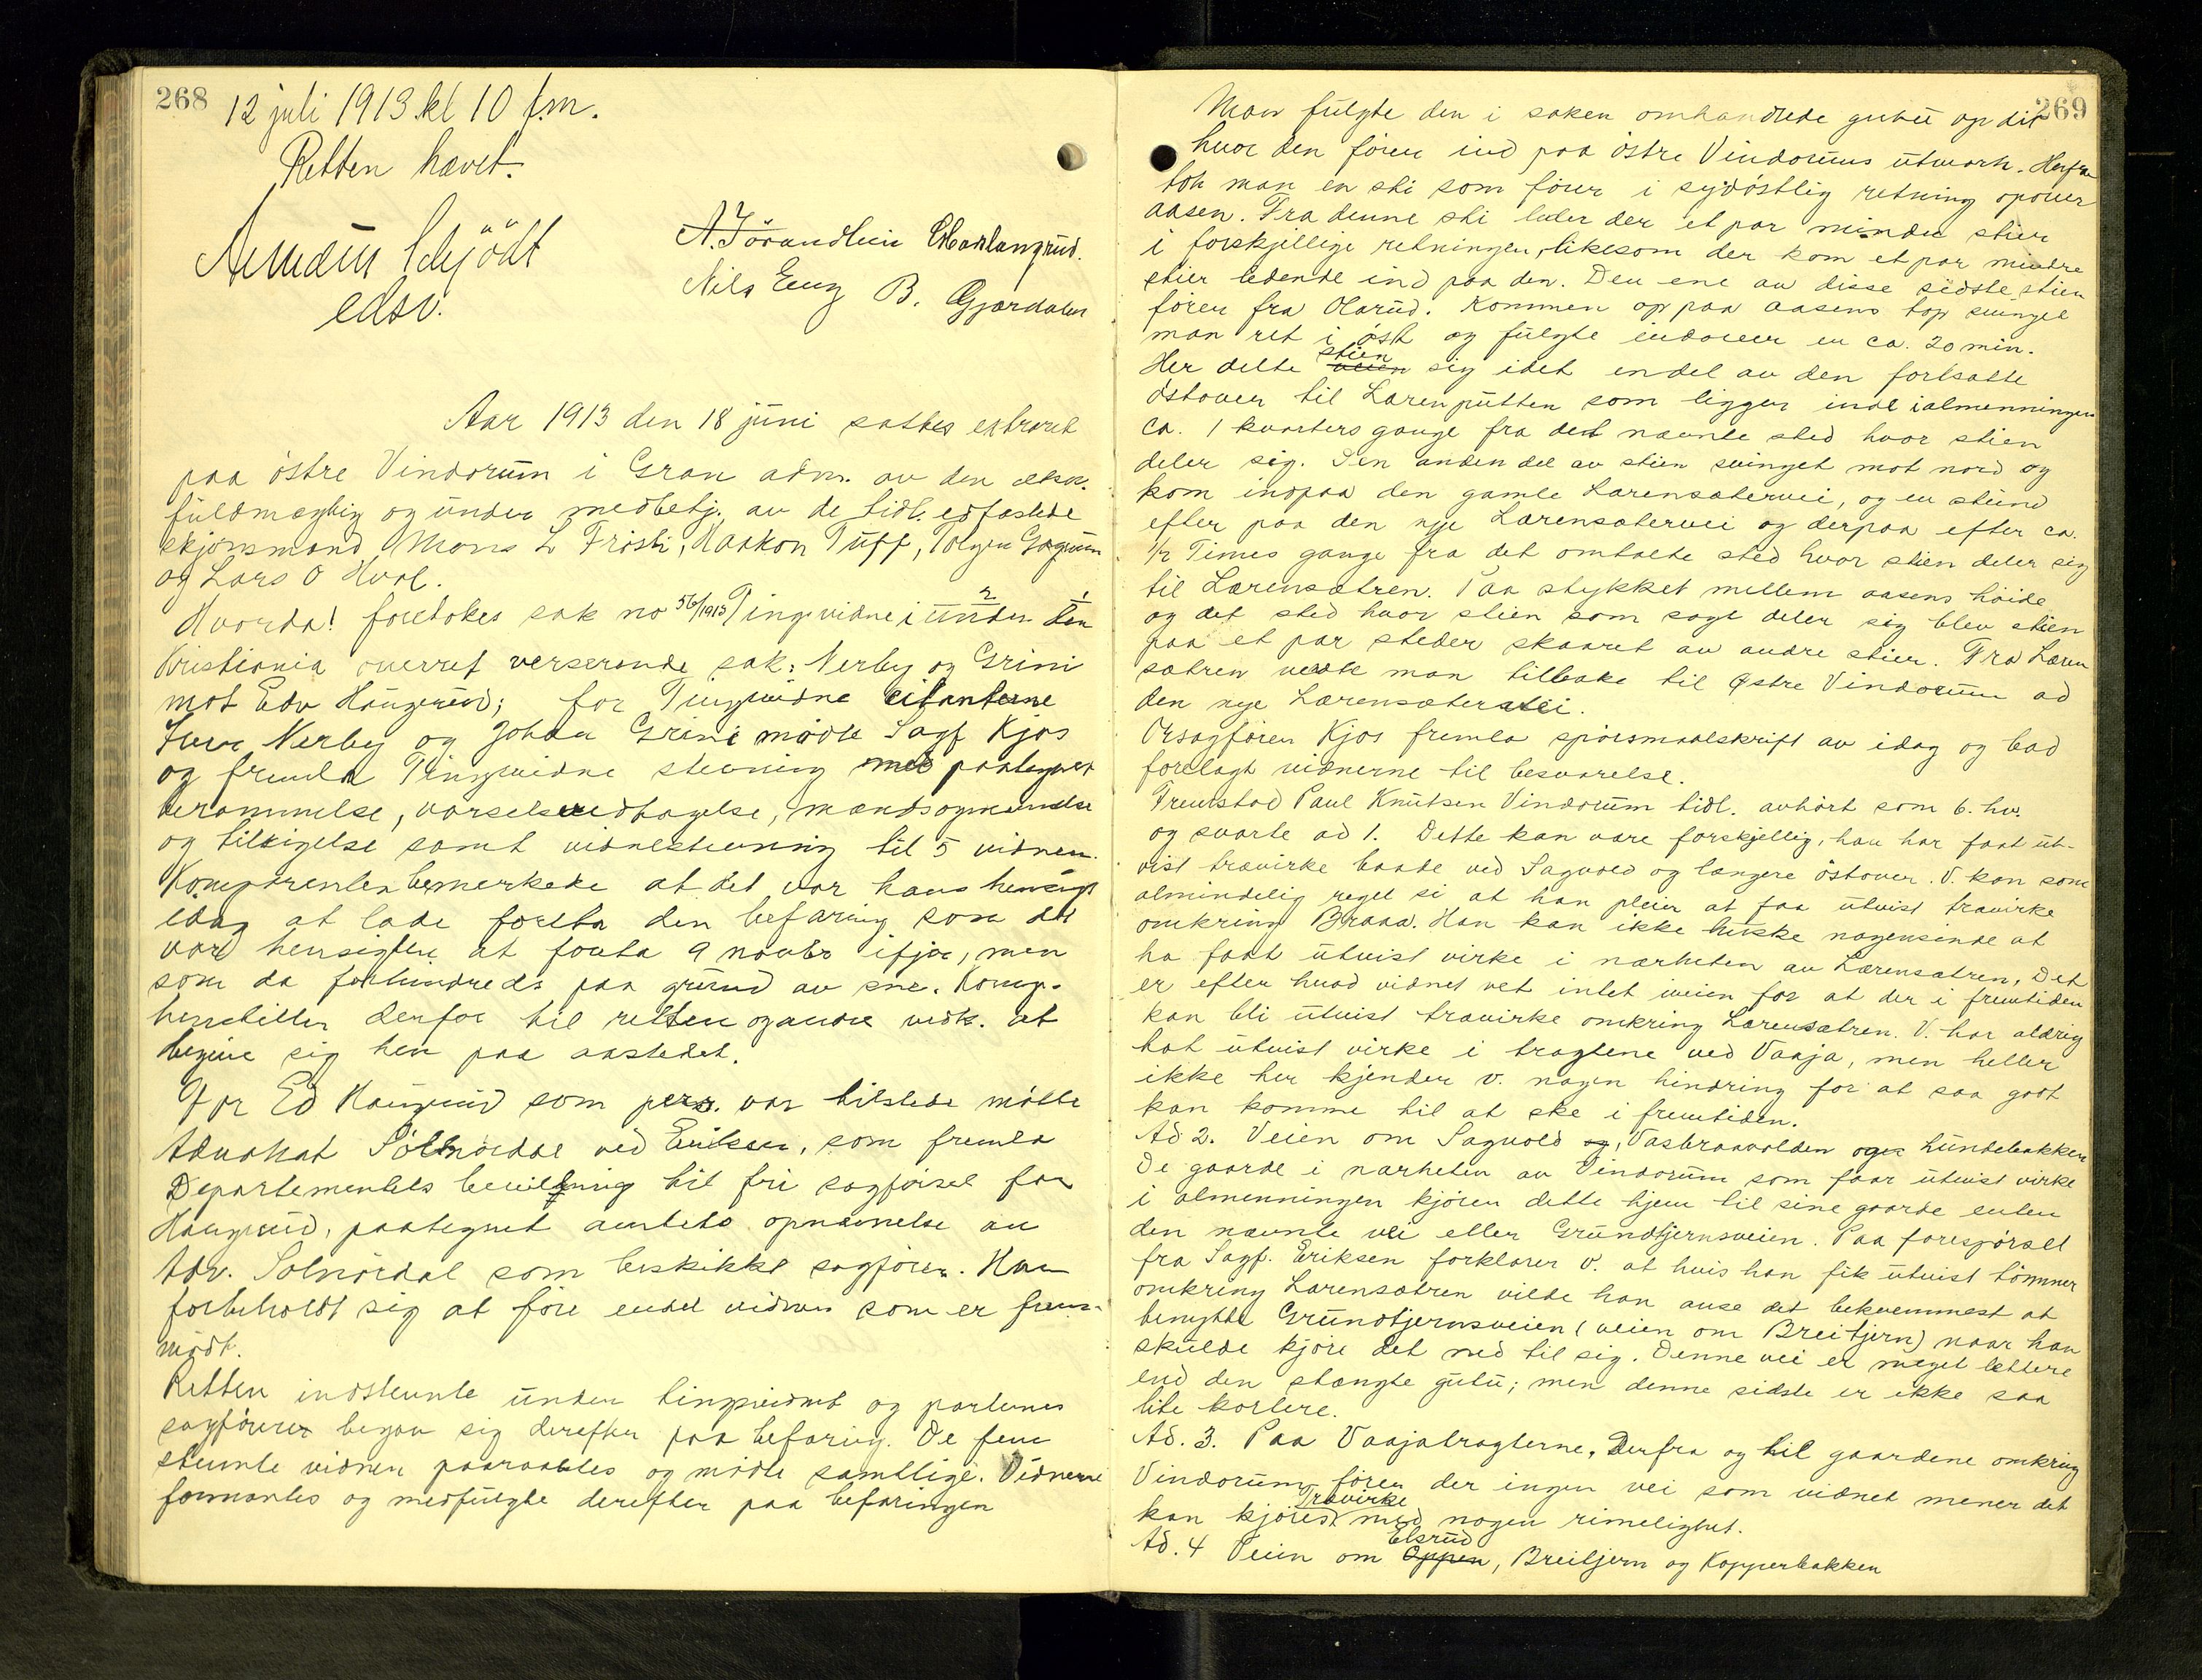 268
12 juli 1913 kl 10 f.m.
Retten hævet.
Schjödt
edsv.
Nils Eng B. Gjærdalen
Aar 1913 den 18 juni sattes extraret
paa östre Vindorum i Gran adm. av den
fuldmægtig og under medbetj. av de tidl. edfæstede
skjönsmænd Mons L Fröshi, Haakon Tuff, Torger
og Lars O Hval.
Hvorda! foretokes sak no 56/1913 Tingsvidne i under 2 den 1
Kristiania overret verserende sak: Nerby og Grini
mot Edv Haugerud; for Tingsvidne citanterne
Iver Nerby og Johan Grini mödte Sagf Kjos
og fremla Tingsvidne stevning med paategnet
berammelse, varselsvedtagelse, mandsopnævnelse
og tilsigelse samt vidnestevning til 5 vidner.
Komparenten bemerkede at det var hans hensigt
idag at lade foreta den befaring som det
var hensigten at foreta 9 novbr ifjor, men
som da forhindredes paa grund av sne. Komp.
henstiller derfor til retten og andre vedk. at
begive sig hen paa aastedet.
For Ed Haugerud som pers. var tilstede mötte
Advokat Sölnördal ved Eriksen, som fremla
Departementets bevilling til fri sagförsel for
Haugerud, paategnet amtets opnævnelse av
Adv. Solnördal som beskikket sagförer. Han
forbeholdt sig at före endel vidner som er frem-
mödt.
Retten indstevnte under tingsvidnet og parternes
sagförere begav sig derefter paa befaring. De fem
stevnte vidner paaraabtes og mödte samtlige. Vidnerne
formantes og medfulgte derefter paa befaringen
269
Man fulgte den i saken omhandlede gutu op dit
hvor den förer ind paa östre Vindorums utmark. Herfra
tok man en sti som förer i sydöstlig retning opover
aasen. Fra denne sti leder der et par mindre stier
i forskjellige retninger, likesom der kom et par mindre
stier ledende ind paa den. Den ene av disse sidste stier
förer fra Olarud. Kommen op paa aasens top svinget
man ret i öst og fulgte indover en ca. 20 min.
Her delte veien stien sig idet endel av den fortsatte
östover til Lærenputten som ligger inde i almenningen
ca. 1 kvarters gange fra det nævnte sted hvor stien
deler sig. Den anden del av stien svinget mot nord og
kom indpaa den gamle Lærensætervei, og en stund
efter paa den nye Lærensætervei og derpaa efter ca.
1/2 Times gange fra det omtalte sted hvor stien deler sig
til Lærensætren. Paa stykket mellem aasens höide
og det sted hvor stien som sagt deler sig blev stien
paa et par steder skaaret av andre stier. Fra Læren
sætren vendte man tilbake til Östre Vindorum ad
den nye Lærensætervei.
Orsagförer Kjos fremla spörsmaalskrift av idag og bad
forelagt vidnerne til besvarelse.
Fremstod Paul Knutsen Vindorum tidl. avhört som 6. hv.
og svarte ad 1. Dette kan være forskjellig, han har faat ut-
vist trævirke baade ved Sagvold og længere östover. V. kan som
almindelig regel si at han pleier at faa utvist trævirke
omkring Braaa. Han kan ikke huske nogensinde at
ha faat utvist virke i nærheten av Lærensætren, Det
er efter hvad vidnet vet intet iveien for at der i fremtiden
kan bli utvist trævirke omkring Lærensætren. V. har aldrig
hat utvist virke i tragtene ved Vaaja, men heller
ikke her kjender v. nogen hindring for at saa godt
kan komme til at ske i fremtiden.
Ad 2. Veien om Sagvold og, Vasbraavolden og Hundebakken
De gaarde i nærheten av Vindorum som faar utvist virke
i almenningen kjörer dette hjem til sine gaarde enten
den nævnte vei eller Grundtjernsveien. Paa forespörsel
fra Sagf. Eriksen forklarer v. at hvis han fik utvist tömmer
omkring Lærensætren vilde han anse det bekvemmest at
benytte Grundtjernsveien (veien om Breitjern) naar han
skulde kjöre det ned til sig. Denne vei er meget lettere
end den stængte gutu; men denne sidste er ikke saa
lite kortere.
Ad. 3. Paa Vaajatragterne, Derfra og til gaardene omkring
Vindorum förer der ingen vei som vidnet mener det
kan kjöres trævirke med nogen rimelighet.
Ad. 4 Veien om Oppen Elsrud, Breitjern og Kopperbakken